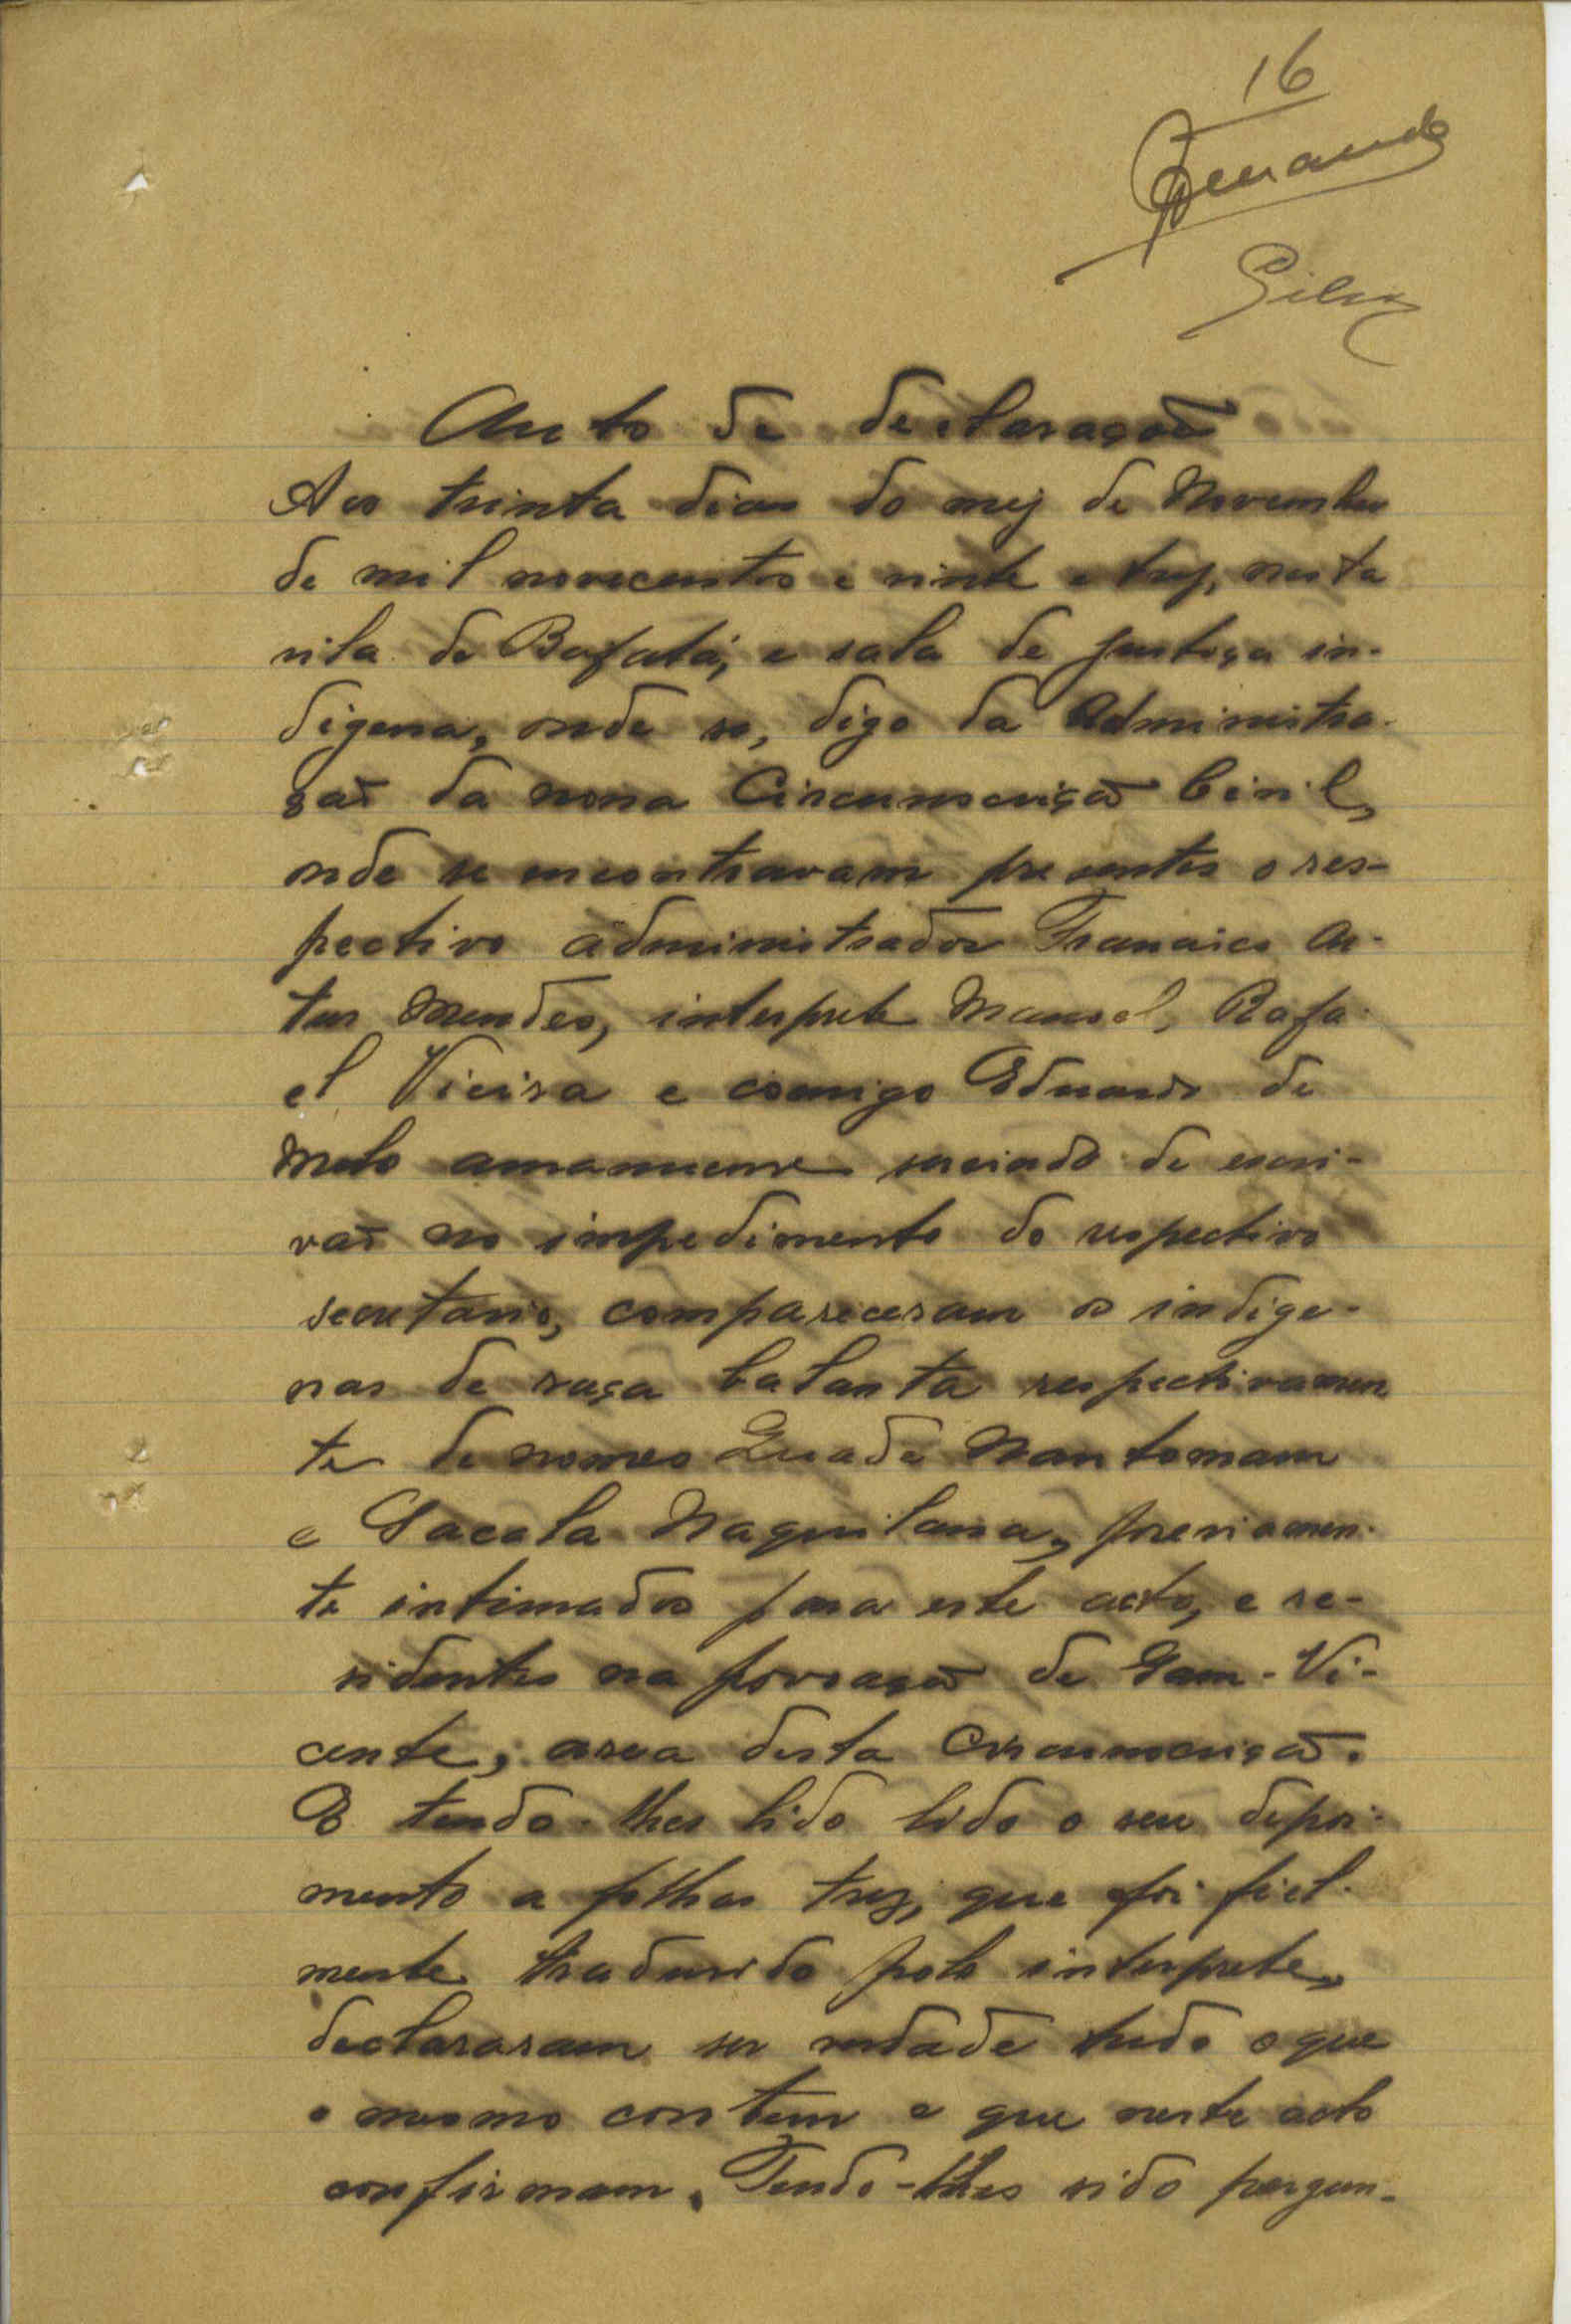 16
Fernando
Silva
Auto de declaração
Aos trinta dias do mez de Novembro
de mil novecentos e vinte e trez, nesta
vila de Bafatá, e sala de justiça in-
digena, onde se, digo da Administra-
ção da nona Circumscrição Civil,
onde se encontravam presentes o res-
pectivo administrador Francisco Ar-
tur Mendes, interprete Manoel, Rafa-
el Vieira e comigo Eduardo de
Melo amanuense servindo de escri-
vão no impedimento do respectivo
secretario, compareceram os indige-
nas de raça balanta respectivamen
te de nomes Quade Nantomam
e Sacala Naquilana, previamen-
te intimados para este acto, e re-
sidentes na povoação de Gam-Vi-
cente, area desta Circumscrição.
E tendo-lhes lido lido o seu depoi-
mento a folhas trez, que foi fiel-
mente traduzido pelo interprete,
declararam ser verdade tudo o que
o mesmo contem e que neste acto
confirmam. Tendo-lhes sido pergun-